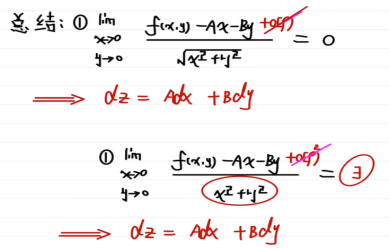 总结: ① lim x→0 y→0 f(x,y) -Ax-By +o(ρ) / √x²+y² = 0
⟹ dz = Adx + Bdy
① lim x→0 y→0 f(x,y) -Ax-By +o(ρ²) / x²+y² = ∃
⟹ dz = Adx + Bdy